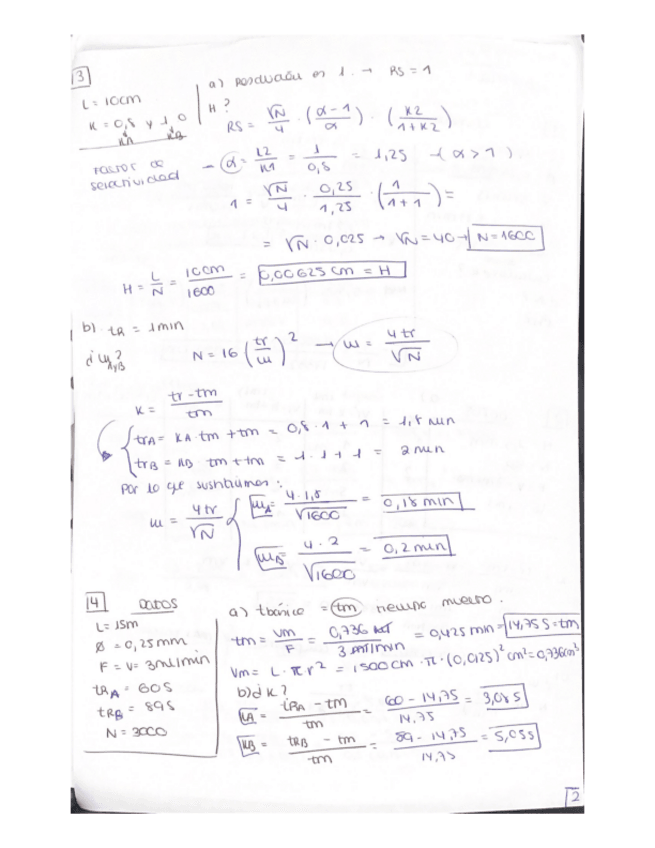 3
a) Resolución es 1. → RS = 1
L = 10cm
K = 0,8 y 1,0
KA KB
H?
RS = √N/4 · (α-1/α) · (K2/1+K2)
Factor de selectividad → α = K2/K1 = 1/0,8 = 1,25 → (α > 1)
1 = √N/4 · 0,25/1,25 · (1/1+1) =
= √N · 0,025 → √N = 40 → N = 1600
H = L/N = 10cm/1600 = 0,00625 cm = H
b). tR = 1min
¿ WA y B?
N = 16 (tr/w)² → w = 4tr/√N
K = tr - tm/tm
trA = KA · tm + tm = 0,8 · 1 + 1 = 1,8 min
trB = KB · tm + tm = 1 · 1 + 1 = 2 min
Por lo que sustituimos:
w = 4tr/√N
WA = 4·1,8/√1600 = 0,18 min
WB = 4·2/√1600 = 0,2 min
14 DATOS
L = 15m
Ø = 0,25mm
F = V = 3ml/min
tRA = 60s
tRB = 89s
N = 3000
a) = tm tiempo muerto.
tm = Vm/F = 0,736/3 ml/min = 0,425 min = 14,75 s = tm
Vm = L · π · r² = 1500cm · π · (0,0125)² cm² = 0,736cm³
b) ¿ K?
KA = tRA - tm/tm = 60 - 14,75/14,75 = 3,08 s
KB = tRB - tm/tm = 89 - 14,75/14,75 = 5,05s
2